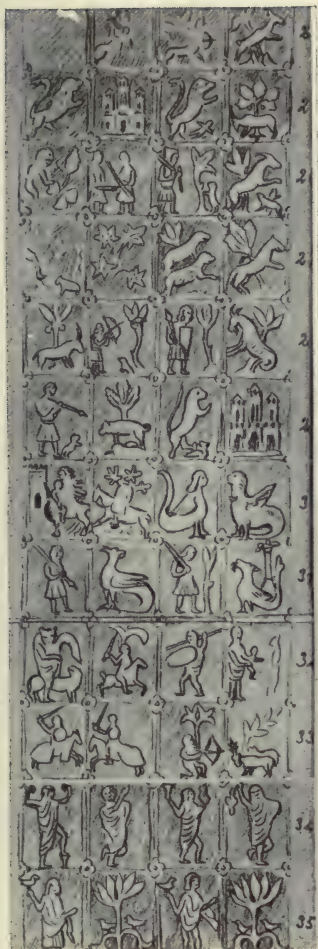 2
2
2
2
2
3
31
32
33
34
35